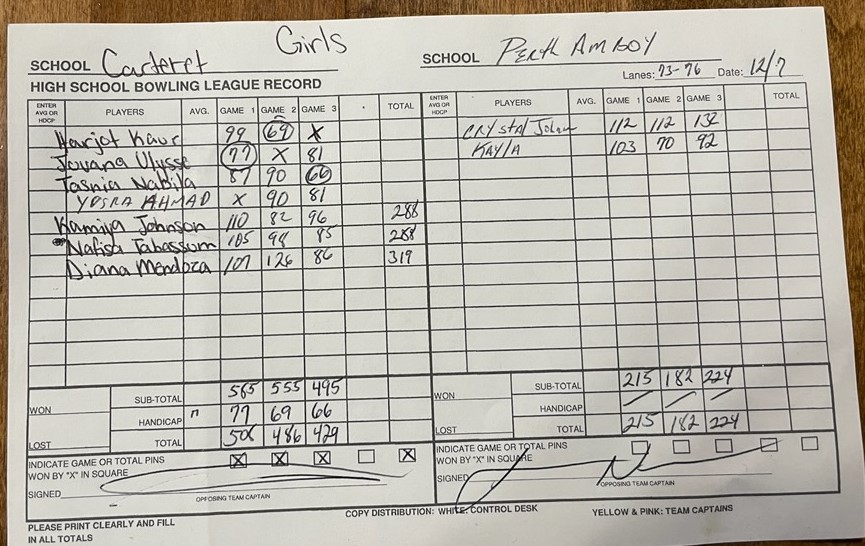 Girls
SCHOOL Carteret SCHOOL Perth Amboy
Lanes: 73-76 Date: 12/7
HIGH SCHOOL BOWLING LEAGUE RECORD
ENTER AVG OR HDCP PLAYERS AVG. GAME 1 GAME 2 GAME 3 TOTAL ENTER AVG OR HDCP PLAYERS AVG. GAME 1 GAME 2 GAME 3 TOTAL
Harjot Kaur 99 69 X Crystal 112 112 132
Jovana Ulysse 77 X 81 KAYLA 103 70 92
Tasnia Nabila 87 90 66
YOSRA AHMAD X 90 81
Kamiya Johnson 110 82 96 288
Nafisa Tabassum 105 98 85 288
Diana Mendoza 107 126 86 319
SUB-TOTAL 585 555 495 SUB-TOTAL 215 182 224
WON HANDICAP 77 69 66 WON HANDICAP / / /
LOST TOTAL 508 486 429 LOST TOTAL 215 182 224
INDICATE GAME OR TOTAL PINS X X X X INDICATE GAME OR TOTAL PINS
WON BY "X" IN SQUARE WON BY "X" IN SQUARE
SIGNED SIGNED
OPPOSING TEAM CAPTAIN OPPOSING TEAM CAPTAIN
PLEASE PRINT CLEARLY AND FILL IN ALL TOTALS
COPY DISTRIBUTION: WHITE: CONTROL DESK YELLOW & PINK: TEAM CAPTAINS